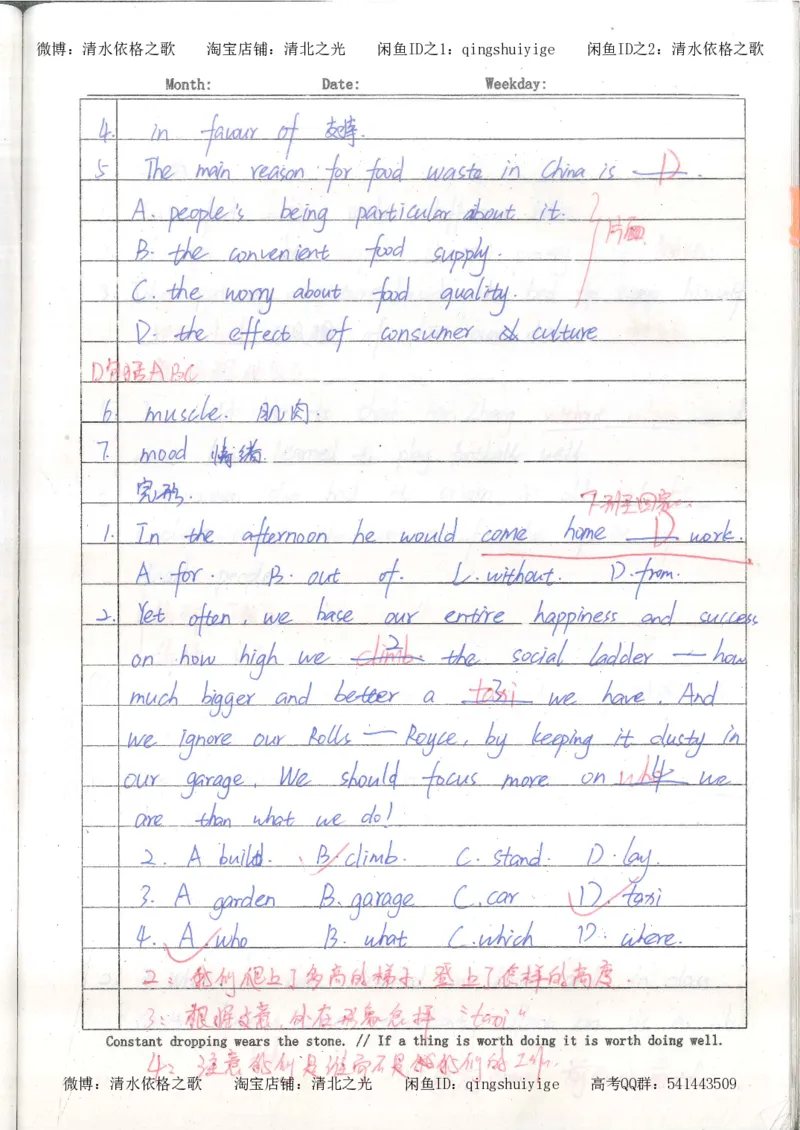 微博：清水依格之歌 淘宝店铺：清北之光 闲鱼ID之1：qingshuiyige 闲鱼ID之2：清水依格之歌
Month: Date: Weekday:
4. in favour of 支持.
5 The main reason for food waste in China is D.
A. people's being particular about it.
片面
B. the convenient food supply.
C. the worry about food quality.
D. the effect of consumer & culture
D包括ABC
6. muscle. 肌肉.
7. mood 情绪.
完形.
下班回家.
1. In the afternoon he would come home D work.
A. for. B. out of. C. without. D. from.
2. Yet often, we base our entire happiness and success
on how high we climb 2 the social ladder — how
much bigger and better a taxi 3 we have. And
we ignore our Rolls — Royce, by keeping it dusty in
our garage. We should focus more on who 4 we
are than what we do!
2. A build. B. climb. C. stand. D. lay.
3. A garden B. garage C. car D. taxi
4. A. who B. what C. which D. where.
2: 我们爬上了多高的梯子，登上了怎样的高度.
3: 根据文意，外在形象怎样 "taxi"
Constant dropping wears the stone. // If a thing is worth doing it is worth doing well.
4: 注意我们是谁而不是我们的工作.
微博：清水依格之歌 淘宝店铺：清北之光 闲鱼ID：qingshuiyige 高考QQ群：541443509